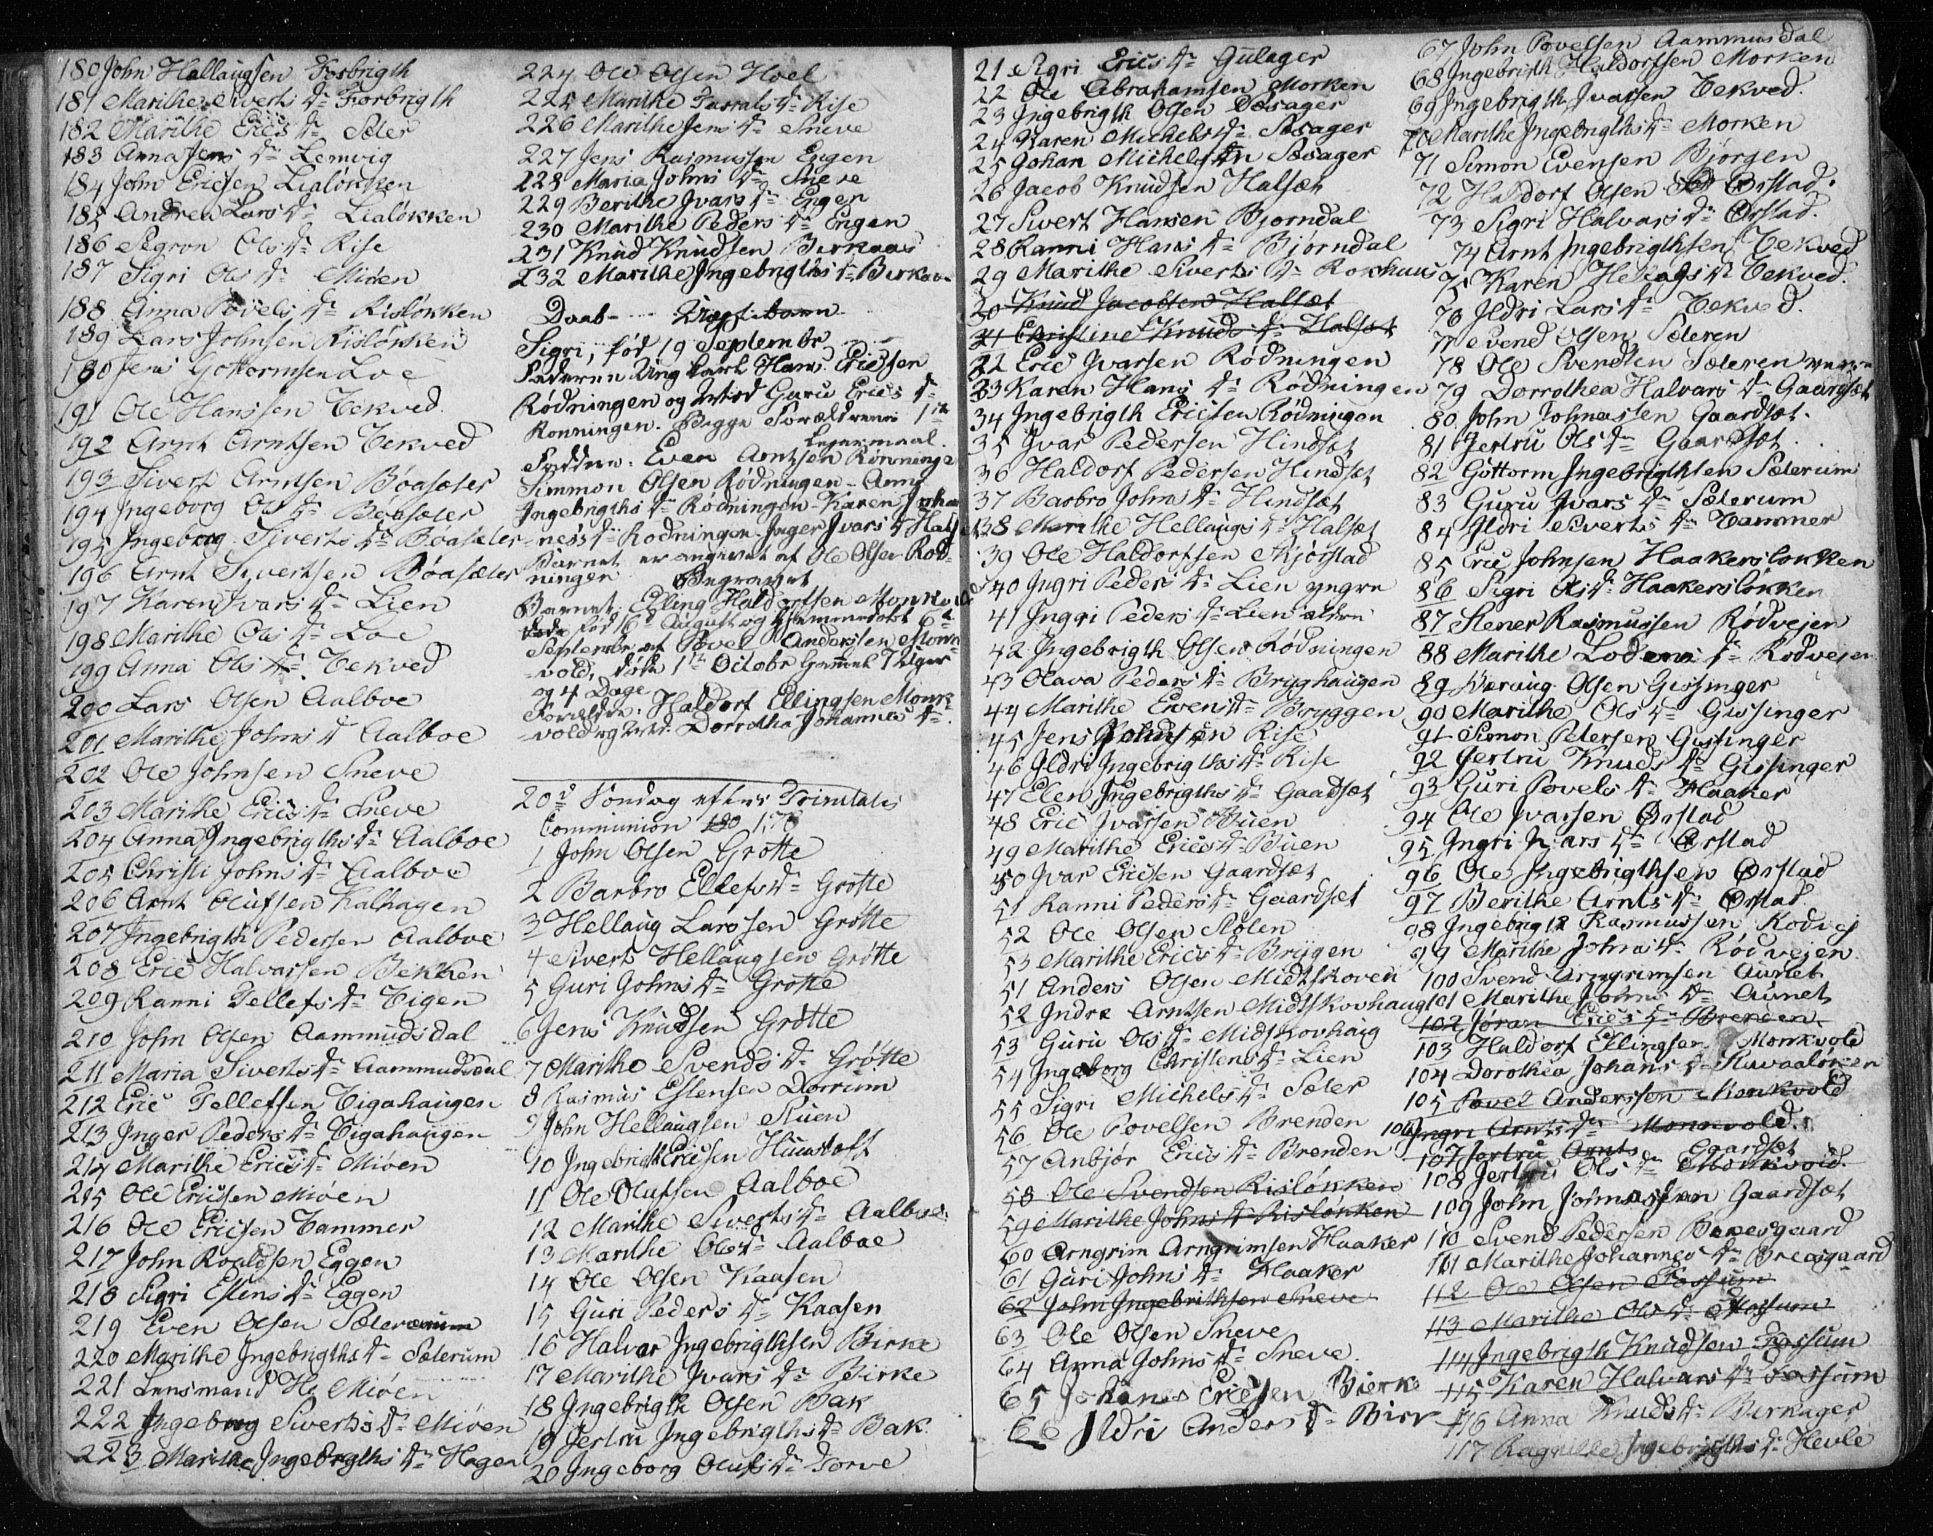 180 John Hallaugsen Fosbrigth
181 Marithe Siverts Dr Fosbrigth
182 Marithe Erics Dr Sæter
183 Anna Jens Dr Lemvig
184 John Ericsen Lialøkken
185 Andrea Lars Dr Lialøkken
186 Ols Dr Rise
187 Sigri Ols Dr Miøen
188 Anna Povels Dr Risløkken
189 Lars Johnsen Risløkken
190 Jens Gottormsen Loe
191 Ole Hanssen Tekved
192 Arnt Arntsen Tekved
193 Sivert Arntsen Bøasæter
194 Ingeborg Ols Dr Bøasæter
195 Ingeborg Siverts Dr Bøasæter
196 Arnt Sivertsen Bøasæter
197 Karen Ivars Dr Lien
198 Marithe Ols Dr Loe
199 Anna Ols Dr Tekved
200 Lars Olsen Aalboe
201 Marithe Johns Dr Aalboe
202 Ole Johnsen Sneve
203 Marithe Erics Dr Sneve
204 Anna Ingebrigths Dr Aalboe
205 Christi Johns Dr Aalboe
206 Arnt Olufsen Kalhagen
207 Ingebrigth Pedersen Aalboe
208 Eric Halvarsen Bekken
209 Ranni Tellefs Dr Tigen
210 John Olsen Aammudsdal
211 Maria Siverts Dr Aammudsdal
212 Eric Tellefsen Tigahaugen
213 Inger Peders Dr Tigahaugen
214 Marithe Erics Dr Miøen
215 Ole Ericsen Miøen
216 Ole Ericsen Tammer
217 John Roaldsen Eggen
218 Sigri Estens Dr Eggen
219 Even Olsen Sæterum
220 Marithe Ingebrigths Dr Sæterum
221 Lensmand H Miøen
222 Ingeborg Siverts Dr Miøen
223 Marithe Ingebrigths Dr Hagen
224 Ole Olsen Hoel
225 Marithe Dr Rise
226 Marithe Jens Dr Sneve
227 Jens Rasmussen Engen
228 Maria Johns Dr Sneve
229 Berithe Ivars Dr Engen
230 Marithe Peders Dr Engen
231 Knud Knudsen Birkaas
232 Marithe Ingebrigths Dr Birkaas
Daab - Uægt. barn
Sigri, fød 19 Septembr
Faderen Ung karl Hans Ericssen
Rødningen og Guru Erics Dr
Rønningen. Begge Forældrenes 1ste
Lejermaal.
Fadder. Even Arntsen Rønninge
Simmon Olsen Rødningen - Anne
Ingebrigths Dr Rødningen - Karen Joha
-nes Dr Rødningen. Inger Ivars Dr Halset
Barnet er angivet af Ole Olsen Rød-
ningen Begravet
Barnet: Elling Haldorsen Monkvold
fød 16de August og hjemmedøbt 6te
Septembr. af Povel Anderssen Monk-
vold, døde 1ste Octobr gammel 7 Uger
og 4 Dage
Forældre: Haldorf Ellingsen Monk-
vold og Dorrothea Johannes Dr.
20de Søndag efter Trinitatis
Communion 180 157
1 John Olsen Grøtte
2 Barbro Ellefs Dr Grøtte
3 Hellaug Larssen Grøtte
4 Sivert Hellaugsen Grøtte
5 Guri Johns Dr Grøtte
6 Jens Knudsen Grøtte
7 Marithe Svends Dr Grøtte
8 Rasmus Estensen Dørrum
9 John Hellaugsen Stuen
10 Ingebrigth Ericsen
11 Ole Olufsen Aalboe
12 Marithe Siverts Dr Aalboe
13 Marithe Ols Dr Aalboe
14 Ole Olsen Kaasen
15 Guri Peders Dr Kaasen
16 Halvor Ingebrigthsen Birke
17 Marithe Ivars Dr Birke
18 Ingebrigth Olsen Bak
19 Jertru Ingebrigths Dr Bak
20 Ingeborg Olufs Dr Torve
21 Sigri Erics Dr Gulager
22 Ole Abrahamsen Morken
23 Ingebrigth Olsen Døsager
24 Karen Michels Dr Døsager
25 Johan Michelsen Døsager
26 Jacob Knudsen Halset
27 Sivert Hansen Bjørndal
28 Ranni Hans Dr Bjørndal
29 Marithe Siverts Dr Rokhuus
30 Knud Jacobsen Halset
31 Christine Knuds Dr Halset
32 Eric Ivarsen Rødningen
33 Karen Hans Dr Rødningen
34 Ingebrigth Ericsen Rødningen
35 Ivar Pedersen Hindset
36 Haldorf Pedersen Hindset
37 Barbro Johns Dr Hindset
38 Marithe Hellaugs Dr Halset
39 Ole Haldorfsen Skjørstad
40 Ingri Peders Dr Lien yngre
41 Ingri Peders Dr Lien ældre
42 Ingebrigth Olsen Rødningen
43 Olava Peders Dr Bryghaugen
44 Marithe Evens Dr Bryggen
45 Jens Johnsen Rise
46 Ildri Ingebrigths Dr Rise
47 Elen Ingebrigths Dr Gaardsæt
48 Eric Ivarsen Buen
49 Marithe Erics Dr Buen
50 Ivar Ericsen Gaardsæt
51 Ranni Peders Dr Gaardsæt
52 Ole Olsen Stølen
53 Marithe Erics Dr Bryggen
51 Anders Olsen Midtskoven
52 Indre Arntsen Midtskovhaug
53 Guru Ols Dr Midtskovhaug
54 Ingeborg Christens Dr Lien
55 Sigri Michels Dr Sæter
56 Ole Povelsen Brenden
57 Anbjør Erics Dr Brenden
58 Ole Svendsen Risløkken
59 Marithe Johns Dr Risløkken
60 Arngrim Arngrimsen Haaker
61 Guri Johns Dr Haaker
62 John Ingebrigthsen Sneve
63 Ole Olsen Sneve
64 Anna Johns Dr Sneve
65 Johanes Ericsen Bierke
66 Ildri Anders Dr Bier
67 John Povelsen Aammusdal
68 Ingebrigth Haldorfsen Morken
69 Ingebrigth Ivarsen Tekved.
70 Marithe Ingebrigths Dr Morken
71 Simon Evensen Bjørgen
72 Haldorf Olsen Ørstad.
73 Sigri Halvars Dr Ørstad.
74 Arnt Ingebrigthsen Tekved
75 Karen Dr Tekved.
76 Ildri Lars Dr Tekved.
77 Svend Olsen Sæteren
78 Ole Svendsen Sæteren yngre
79 Dorrothea Halvars Dr Gaardsæt
80 John Johnassen Gaardsæt.
81 Jertru Ols Dr Gaardsæt.
82 Gottorm Ingebrigthsen Sæterum
83 Guru Ivars Dr Sæterum
84 Ildri Siverts Dr Tammer
85 Eric Johnsen Haakersløkken
86 Sigri Ols Dr Haakersløkken
87 Stener Rasmussen Rødvejen
88 Marithe Lodens Dr Rødvejen
89 Olsen Gissinger
90 Marithe Ols Dr Gissinger
91 Simon Petersen Gissinger
92 Jertru Knuds Dr Gissinger
93 Guri Povels Dr Haaker
94 Ole Ivarsen Ørstad
95 Ingri Ivars Dr Ørstad
96 Ole Ingebrigthsen Ørstad
97 Berithe Arnts Dr Ørstad.
98 Ingebrigt Rasmussen Rødvej
99 Marithe Johns Dr Rødvejen
100 Svend Arngrimsen Aunet
101 Marithe Johns Dr Aunet
102 Jøran Erics Dr Brenden
103 Haldorf Ellingsen Monkvold
104 Dorothea Johans Dr
105 Povel Anderssen Monkvold
106 Ingri Arnts Dr Monkvold.
107 Jertru Arnts Gaardsæt
108 Jertru Ols Dr Monkvold.
109 John Johnassen Gaardsæt
110 Svend Pedersen Brexsgaard
111 Marithe Johannes Dr Brecsgaard
112 Ole Olsen Fossum
113 Marithe Ols Dr Fossum
114 Ingebrigth Knudsen Fossum
115 Karen Halvars Dr Fossum
116 Anna Knuds Dr Birkager
117 Ragnilde Ingebrigths Dr Hevle